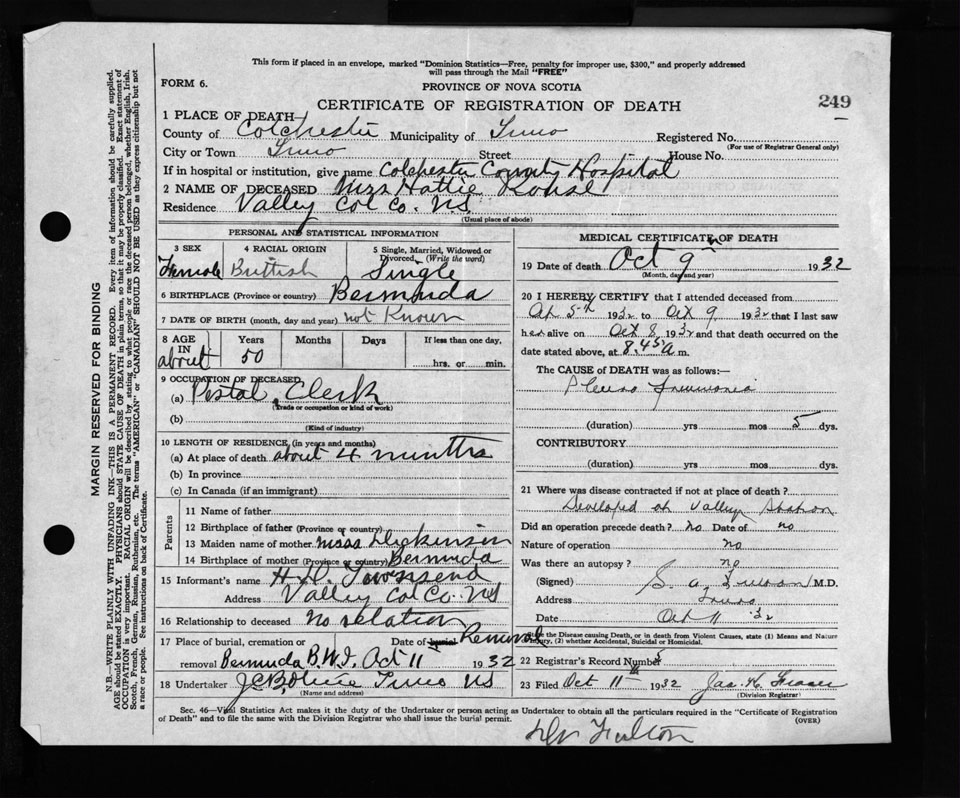 This form if placed in an envelope, marked "Dominion Statistics—Free, penalty for improper use, $300," and properly addressed
will pass through the Mail "FREE"
FORM 6.
PROVINCE OF NOVA SCOTIA
CERTIFICATE OF REGISTRATION OF DEATH
249
1 PLACE OF DEATH
County of Colchester Municipality of Truro Registered No.
(For use of Registrar General only)
City or Town Truro Street House No.
If in hospital or institution, give name Colchester County Hospital
2 NAME OF DECEASED Miss Hattie
Residence Valley Col Co. N.S.
(Usual place of abode)
PERSONAL AND STATISTICAL INFORMATION
3 SEX 4 RACIAL ORIGIN 5 Single, Married, Widowed or Divorced (Write the word)
Female British Single
6 BIRTHPLACE (Province or country) Bermuda
7 DATE OF BIRTH (month, day and year) not Known
8 AGE IN Years Months Days If less than one day,
about 50 hrs. or min.
9 OCCUPATION OF DECEASED
(a) Postal Clerk
(Trade or occupation or kind of work)
(b)
(Kind of industry)
10 LENGTH OF RESIDENCE (in years and months)
(a) At place of death about 4 months
(b) In province
(c) In Canada (if an immigrant)
Parents
11 Name of father
12 Birthplace of father (Province or country)
13 Maiden name of mother miss Dickinson
14 Birthplace of mother (Province or country) Bermuda
15 Informant's name H.D. Townsend
Address Valley Col Co. NS
16 Relationship to deceased No relation
17 Place of burial, cremation or Date of burial Removal
removal Bermuda B.W.I. Oct 11 1932
18 Undertaker Truro NS
(Name and address)
MEDICAL CERTIFICATE OF DEATH
19 Date of death Oct 9th 1932
(Month, day and year)
20 I HEREBY CERTIFY that I attended deceased from
5th 1932 to Oct 9 1932 that I last saw
her alive on Oct 8 1932 and that death occurred on the
date stated above, at 8.45 A m.
The CAUSE of DEATH was as follows:—
Pleuro Pneumonia
(duration) yrs mos 5 dys.
CONTRIBUTORY
(duration) yrs mos dys.
21 Where was disease contracted if not at place of death?
Developed at Valley Station
Did an operation precede death? no Date of no
Nature of operation no
Was there an autopsy? no
(Signed) M.D.
Address Truro
Date Oct 11 32
State the Disease causing Death, or in death from Violent Causes, state (1) Means and Nature
of Injury, (2) whether Accidental, Suicidal or Homicidal.
22 Registrar's Record Number
23 Filed Oct 11th 1932 Jas. H. Fraser
(Division Registrar)
Sec. 46—Vital Statistics Act makes it the duty of the Undertaker or person acting as Undertaker to obtain all the particulars required in the "Certificate of Registration
of Death" and to file the same with the Division Registrar who shall issue the burial permit.
(OVER)
Dr Fulton
MARGIN RESERVED FOR BINDING
N.B.—WRITE PLAINLY WITH UNFADING INK—THIS IS A PERMANENT RECORD. Every item of information should be carefully supplied.
AGE should be stated EXACTLY. PHYSICIANS should STATE CAUSE OF DEATH in plain terms, so that it may be properly classified. Exact statement of
OCCUPATION is very important. RACIAL ORIGIN will be described by stating to what people or race the deceased person belonged, whether English, Irish,
Scotch, French, German, Russian, Ruthenian, etc. The terms "AMERICAN" or "CANADIAN" SHOULD NOT BE USED as they express citizenship but not
a race or people. See instructions on back of Certificate.